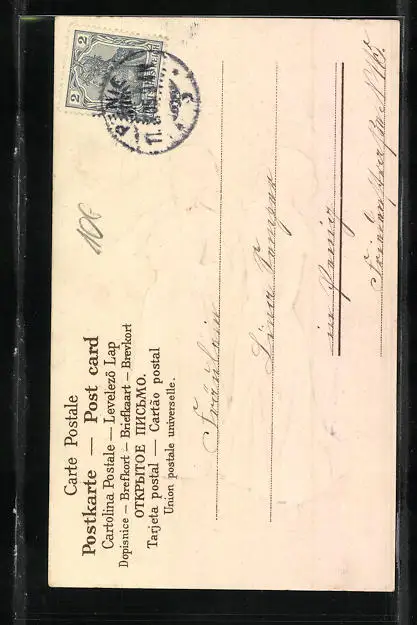 Carte Postale
Postkarte — Post card
Cartolina Postale — Levelező Lap
Dopisnice — Brefkort — Briefkaart — Brevkort
ОТКРЫТОЕ ПИСЬМО.
Tarjeta postal — Cartão postal
Union postale universelle.
2 2
10€
Fräulein
Lina
in Penig